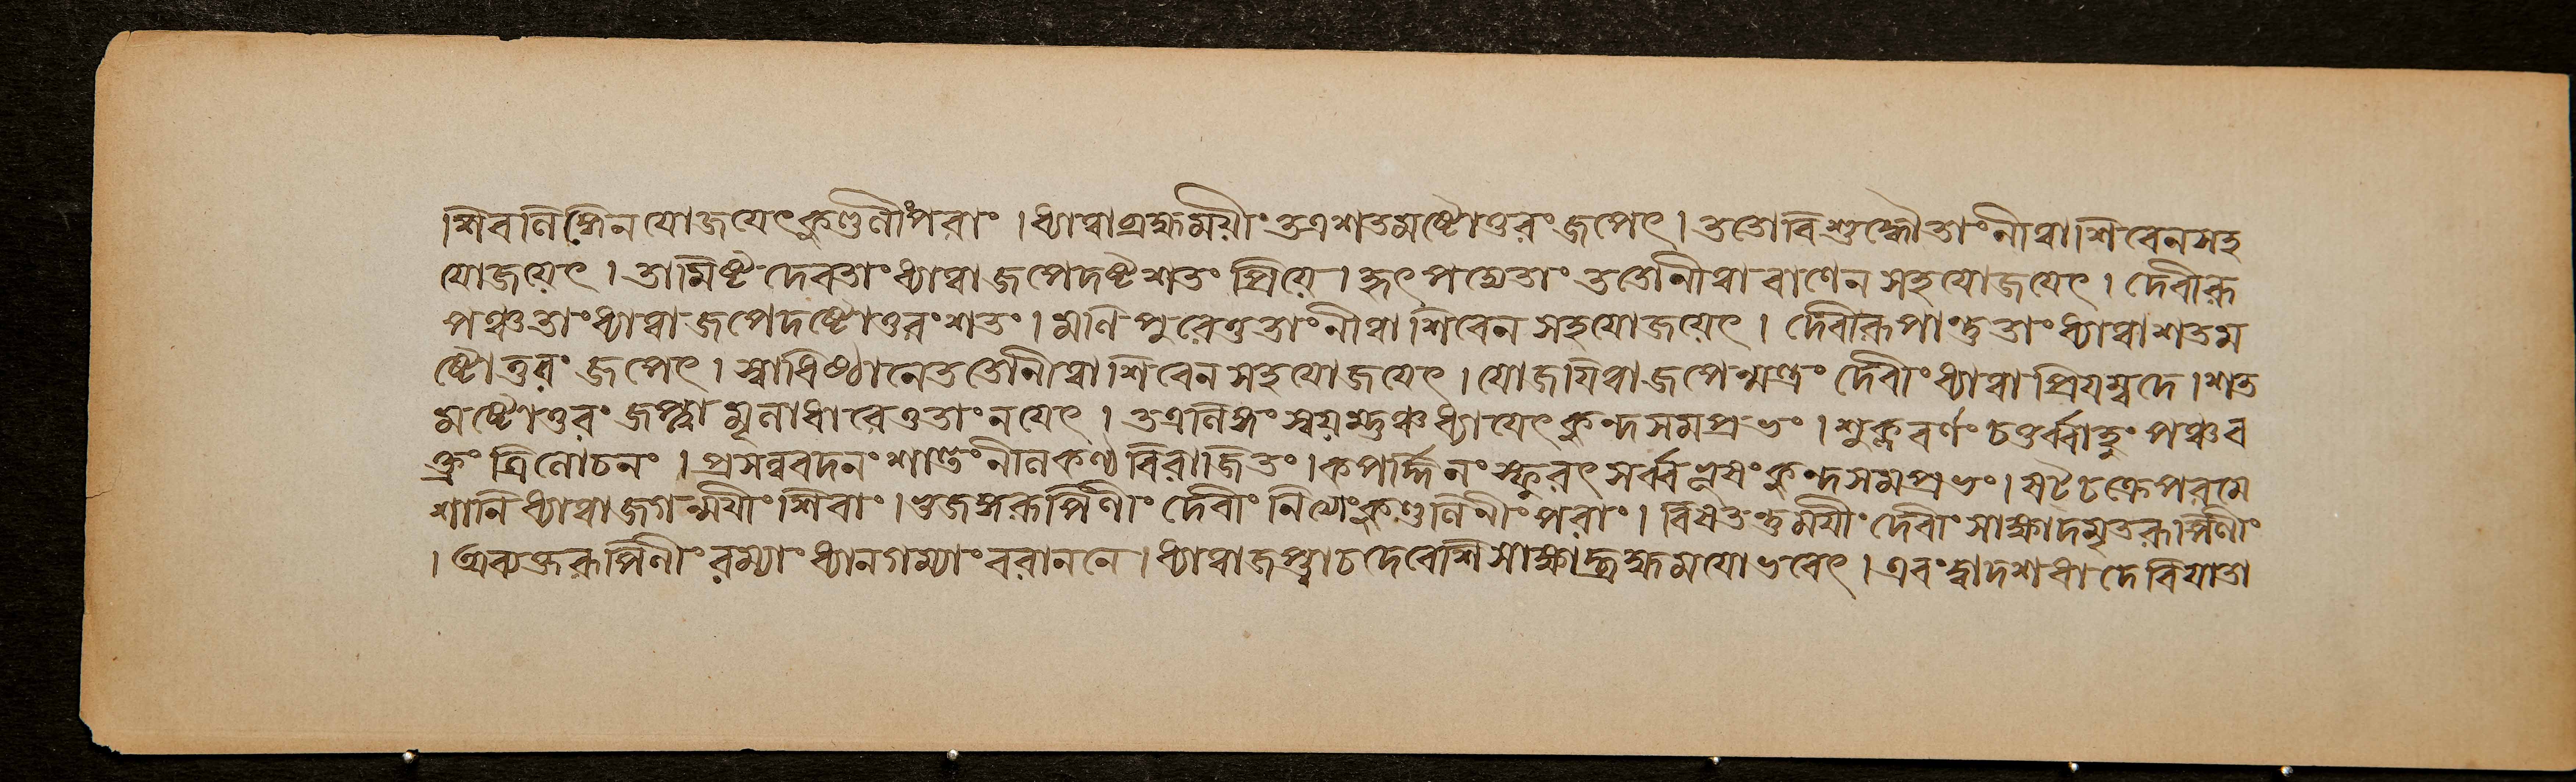 ।শিবলিঙ্গেন যোজয়েৎকুণ্ডলীংপরাং । ধ্যাত্বাব্রহ্মময়ীং তত্রশতমষ্টোত্তরং জপেৎ । ততোবিশুদ্ধৌতাং নীত্বা শিবেনসহ
যোজয়েৎ । তামিষ্ট দেবতাং ধ্যাত্বা জপেদষ্টশতং প্রিয়ে । হৃৎ পদ্মেতাং ততোনীত্বা বাণেন সহযোজয়েৎ । দেবীরূ
পঞ্চতাং ধ্যাত্বা জপেদষ্টোত্তরংশতং । মণি পুরেতুতাং নীত্বা শিবেন সহযোজয়েৎ । দেবীরূপান্তুতাং ধ্যাত্বা শতম
ষ্টোত্তরং জপেৎ । স্বাধিষ্ঠানেততোনীত্বা শিবেন সহযোজয়েৎ । যোজয়িত্বা জপেন্মন্ত্রং দেবীং ধ্যাত্বা প্রিয়ম্বদে । শত
মষ্টোত্তরং জপ্ত্বা মূলাধারেতুতাং নয়েৎ । তত্রলিঙ্গং স্বয়ম্ভুঞ্চ ধ্যায়েৎকুন্দসমপ্রভং । শুক্লবর্ণং চতুর্ব্বাহুং পঞ্চব
ক্ত্রং ত্রিলোচনং । প্রসন্নবদনং শান্তংনীলকণ্ঠ বিরাজিতং । কপর্দ্দিনং স্ফুরৎ সর্ব্ব কুন্দসমপ্রভং । ষট্চক্রেপরমে
শানি ধ্যাত্বা জগন্ময়ীং শিবাং । ভুজঙ্গরূপিণীং দেবীং নিত্যাংকুণ্ডলিনীং পরাং । বিষতন্তুময়ীং দেবীং সাক্ষাদমৃতরূপিণীং
। অব্যক্তরূপিণীং রম্যাং ধ্যানগম্যাং বরাননে । ধ্যাত্বা জপ্ত্বাচদেবেশি সাক্ষাদ্ব্রহ্মময়োভবেৎ । এবংদ্বাদশধা দেবিযাতা